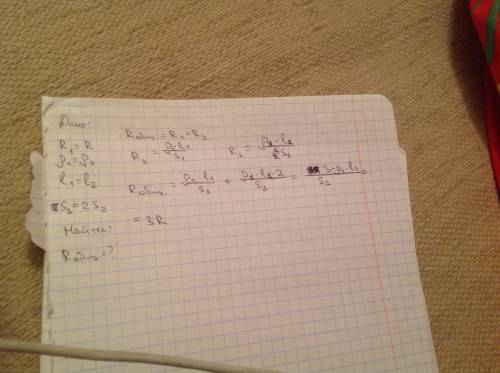 Дано:
R₁ = R
ρ₁ = ρ₂
l₁ = l₂
S₁ = 2S₂
Найти:
Rобщ = ?
Rобщ. = R₁ + R₂
R₁ = ρ₁·l₁/S₁ R₂ = ρ₁·l₁/½S₁
Rобщ. = ρ₁·l₁/S₁ + ρ₁·l₁·2/S₁ = 3·ρ₁·l₁/S₁ =
= 3R